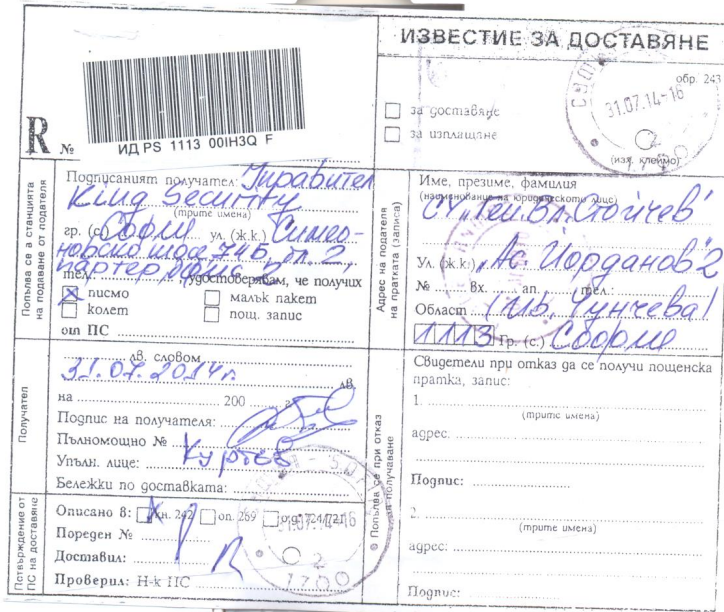 ИЗВЕСТИЕ ЗА ДОСТАВЯНЕ
обр. 243
за доставяне
за изплащане
31.07.14-16
2
1700
(изх. клеймо)
R №
ИД PS 1113 00IH3Q F
Попълва се в станцията на подаване от подателя
Подписаният получател: Управител
King Security
(трите имена)
гр. (с.) София ул. (ж.к.) Симео-
новско шосе 74Б, ет. 2,
партер, офис 2
тел. удостоверявам, че получих
писмо
малък пакет
колет
пощ. запис
от ПС
Адрес на подателя на пратката (записа)
Име, презиме, фамилия
(наименование на юридическото лице)
СУ "Ген. Вл. Стойчев"
Ул. (ж.к.) "Ас. Йорданов" 2
№ Вх. ап. тел.
Област (Ив. Чунчева)
1113 Гр. (с.) София
Получател
лв. словом
31.07.2014г.
лв.
на 200 г.
Подпис на получателя:
Пълномощно №
Упълн. лице: Куртев
Бележки по доставката:
Попълва се при отказ за получаване
Свидетели при отказ да се получи пощенска
пратка, запис:
1.
(трите имена)
адрес.
Подпис:
2.
(трите имена)
адрес:
Подпис:
Потвърждение от ПС на доставяне
Описано в: кн. 242 оп. 269
Пореден №
Доставил:
Проверил: Н-к ПС
31.07.14-16
2
1700